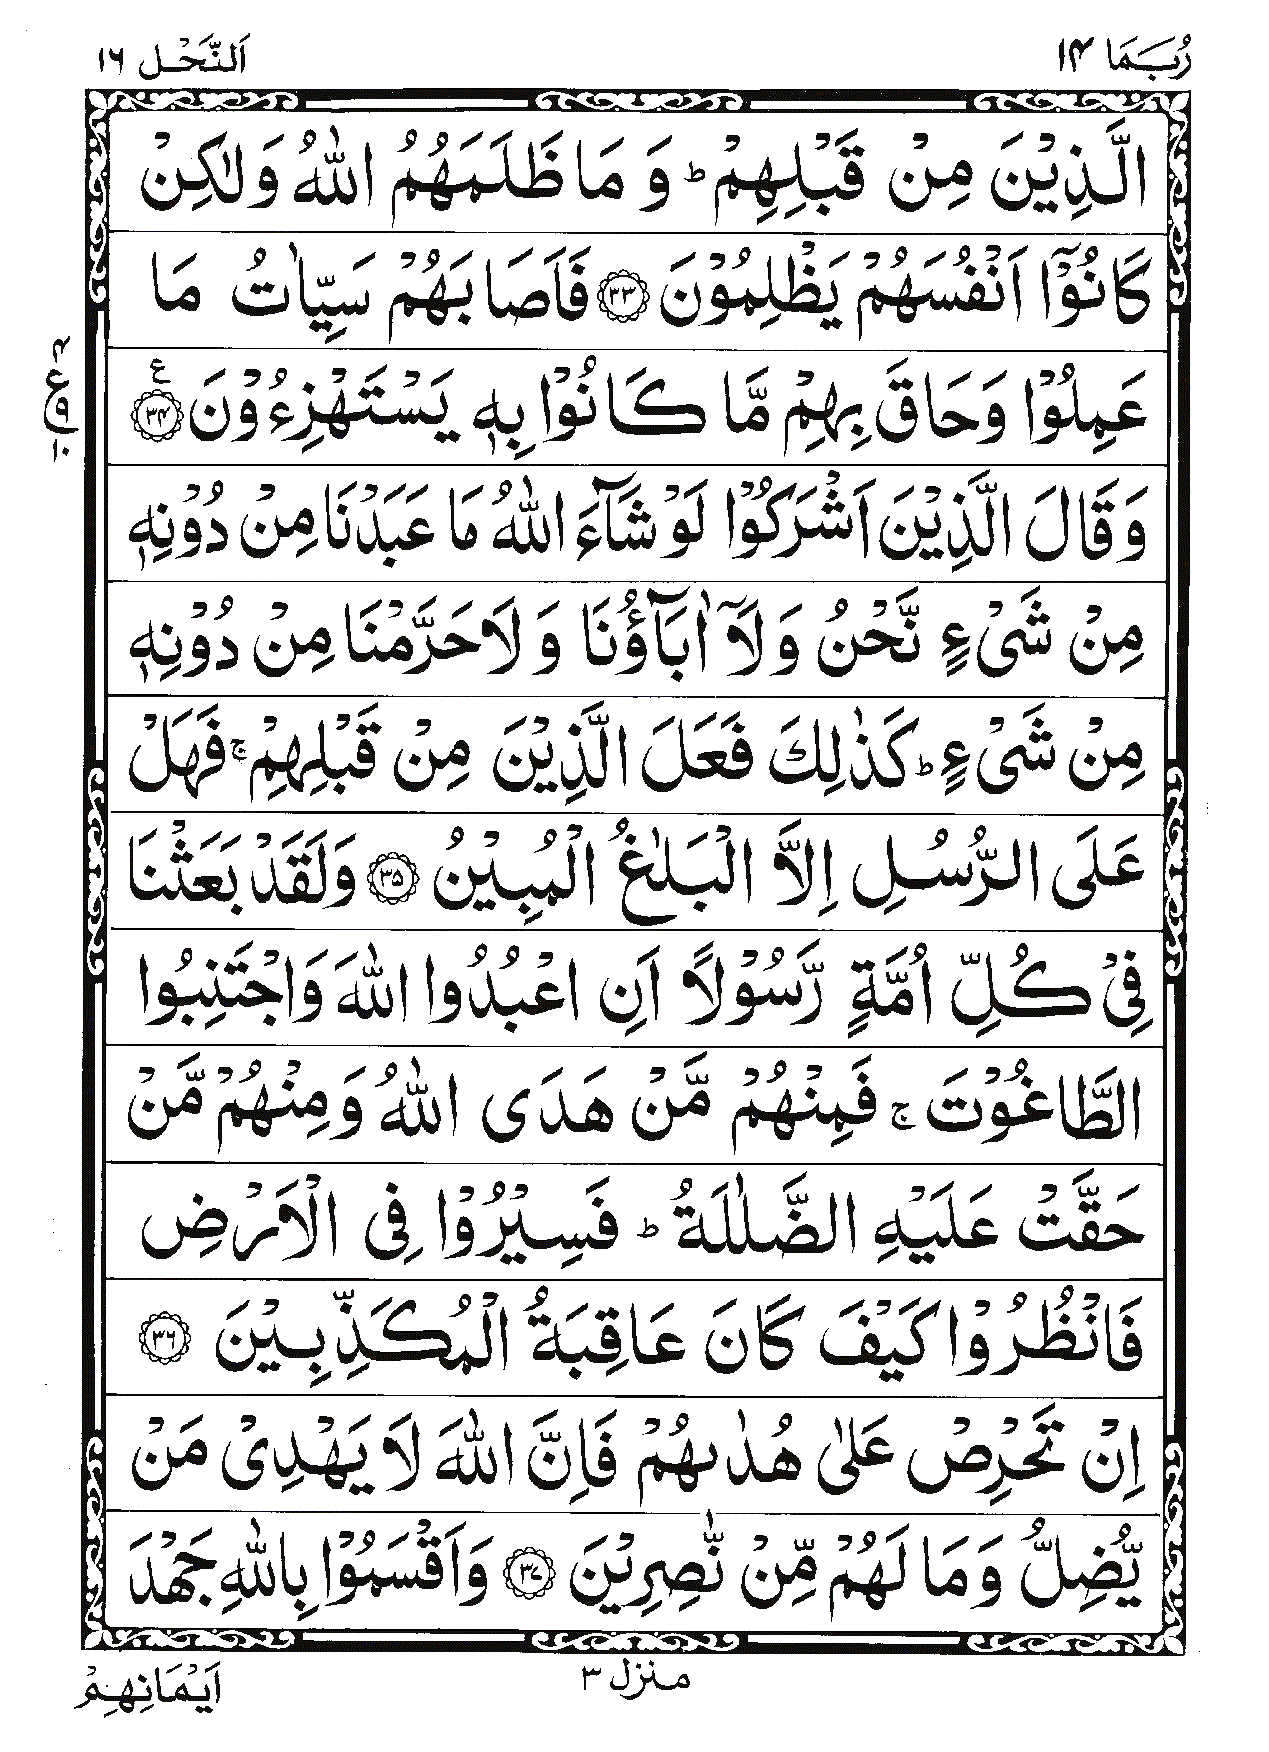 رُبَمَا ١٤ اَلنَّحْل ١٦
الَّذِيْنَ مِنْ قَبْلِهِمْ ؕ وَ مَا ظَلَمَهُمُ اللّٰهُ وَلٰكِنْ
كَانُوْۤا اَنْفُسَهُمْ يَظْلِمُوْنَ ﴿۳۳﴾ فَاَصَابَهُمْ سَيِّاٰتُ مَا
عَمِلُوْا وَحَاقَ بِهِمْ مَّا كَانُوْا بِهٖ يَسْتَهْزِءُوْنَ ﴿۳۴﴾ ع
٤ ع ٩ ١٠
وَقَالَ الَّذِيْنَ اَشْرَكُوْا لَوْ شَآءَ اللّٰهُ مَا عَبَدْنَا مِنْ دُوْنِهٖ
مِنْ شَىْءٍ نَّحْنُ وَلَاۤ اٰبَآؤُنَا وَ لَاحَرَّمْنَا مِنْ دُوْنِهٖ
مِنْ شَىْءٍ ؕ كَذٰلِكَ فَعَلَ الَّذِيْنَ مِنْ قَبْلِهِمْ ۚ فَهَلْ
عَلَى الرُّسُلِ اِلَّا الْبَلٰغُ الْمُبِيْنُ ﴿۳۵﴾ وَلَقَدْ بَعَثْنَا
فِىْ كُلِّ اُمَّةٍ رَّسُوْلًا اَنِ اعْبُدُوا اللّٰهَ وَاجْتَنِبُوا
الطَّاغُوْتَ ۚ فَمِنْهُمْ مَّنْ هَدَى اللّٰهُ وَمِنْهُمْ مَّنْ
حَقَّتْ عَلَيْهِ الضَّلٰلَةُ ؕ فَسِيْرُوْا فِى الْاَرْضِ
فَانْظُرُوْا كَيْفَ كَانَ عَاقِبَةُ الْمُكَذِّبِيْنَ ﴿۳۶﴾
اِنْ تَحْرِصْ عَلٰى هُدٰىهُمْ فَاِنَّ اللّٰهَ لَا يَهْدِىْ مَنْ
يُّضِلُّ وَمَا لَهُمْ مِّنْ نّٰصِرِيْنَ ﴿۳۷﴾ وَاَقْسَمُوْا بِاللّٰهِ جَهْدَ
منزل ٣
اَيْمَانِهِمْ